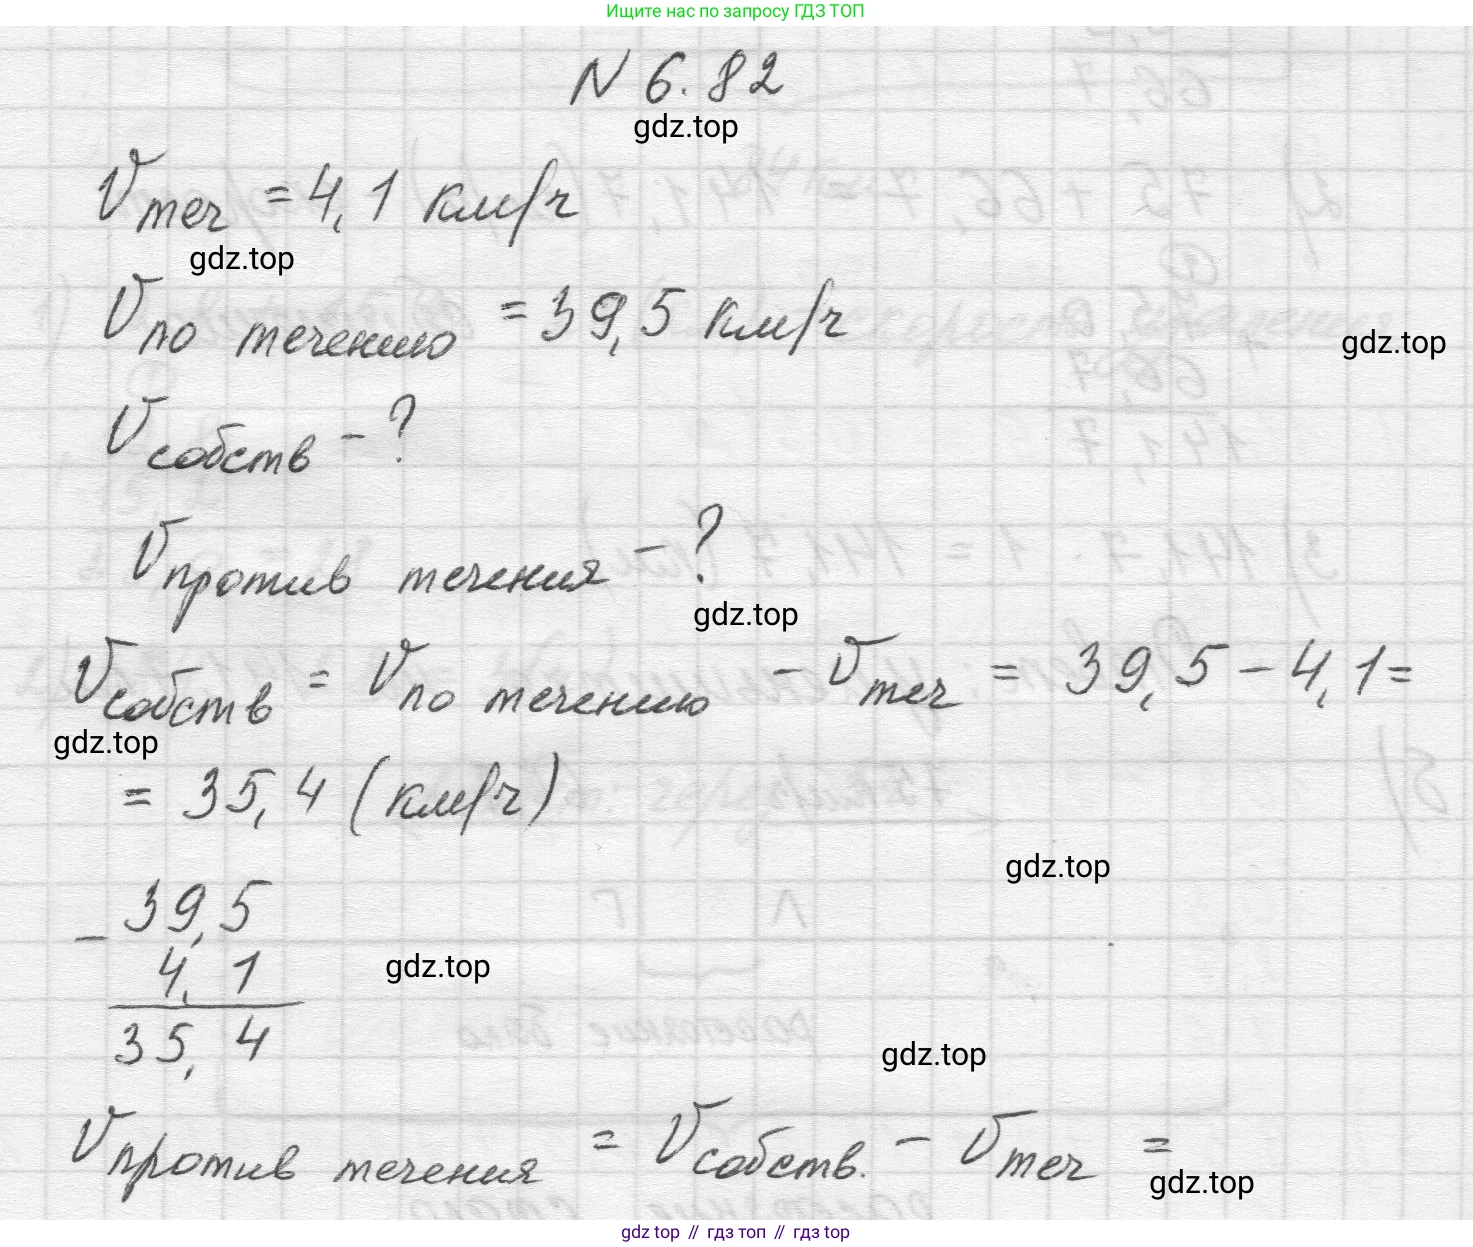 Ищите нас по запросу ГДЗ ТОП
N 6.82
gdz.top
Vтеч = 4,1 км/ч
gdz.top
Vпо течению = 39,5 км/ч
gdz.top
Vсобств - ?
Vпротив течения - ?
gdz.top
Vсобств = Vпо течению - Vтеч = 39,5 - 4,1 =
gdz.top
= 35,4 (км/ч)
gdz.top
- 39,5
4,1
gdz.top
35,4
gdz.top
Vпротив течения = Vсобств. - Vтеч =
gdz.top
gdz top // гдз топ // гдз top